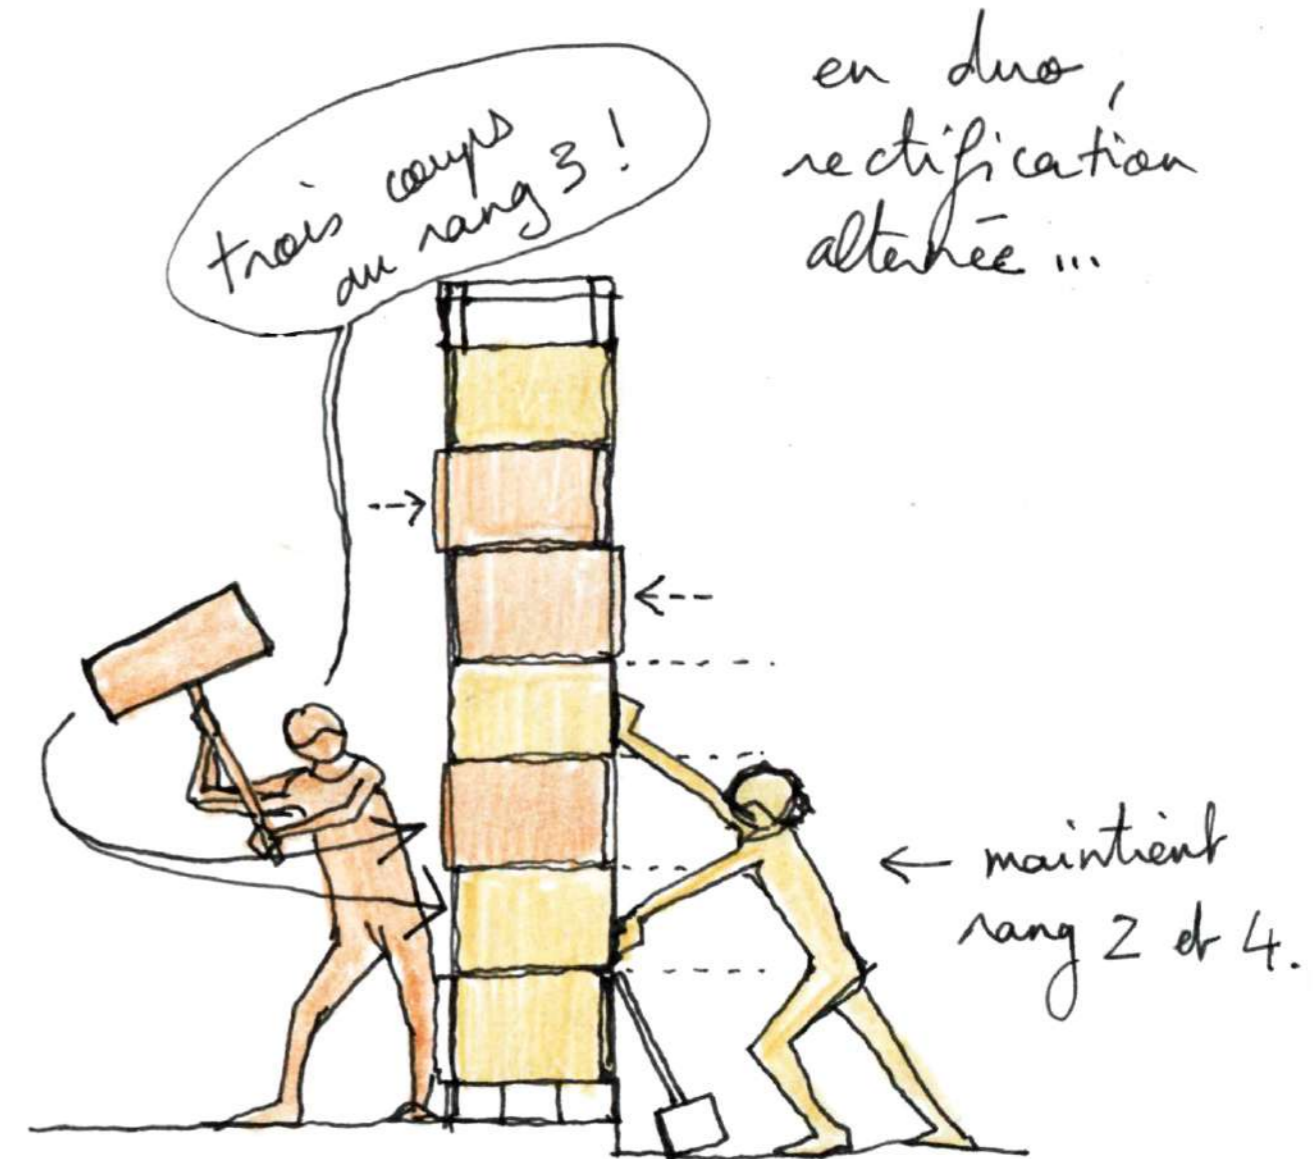 trois coups
au rang 3 !
en duo,
rectification
alternée ...
← maintient
rang 2 et 4.